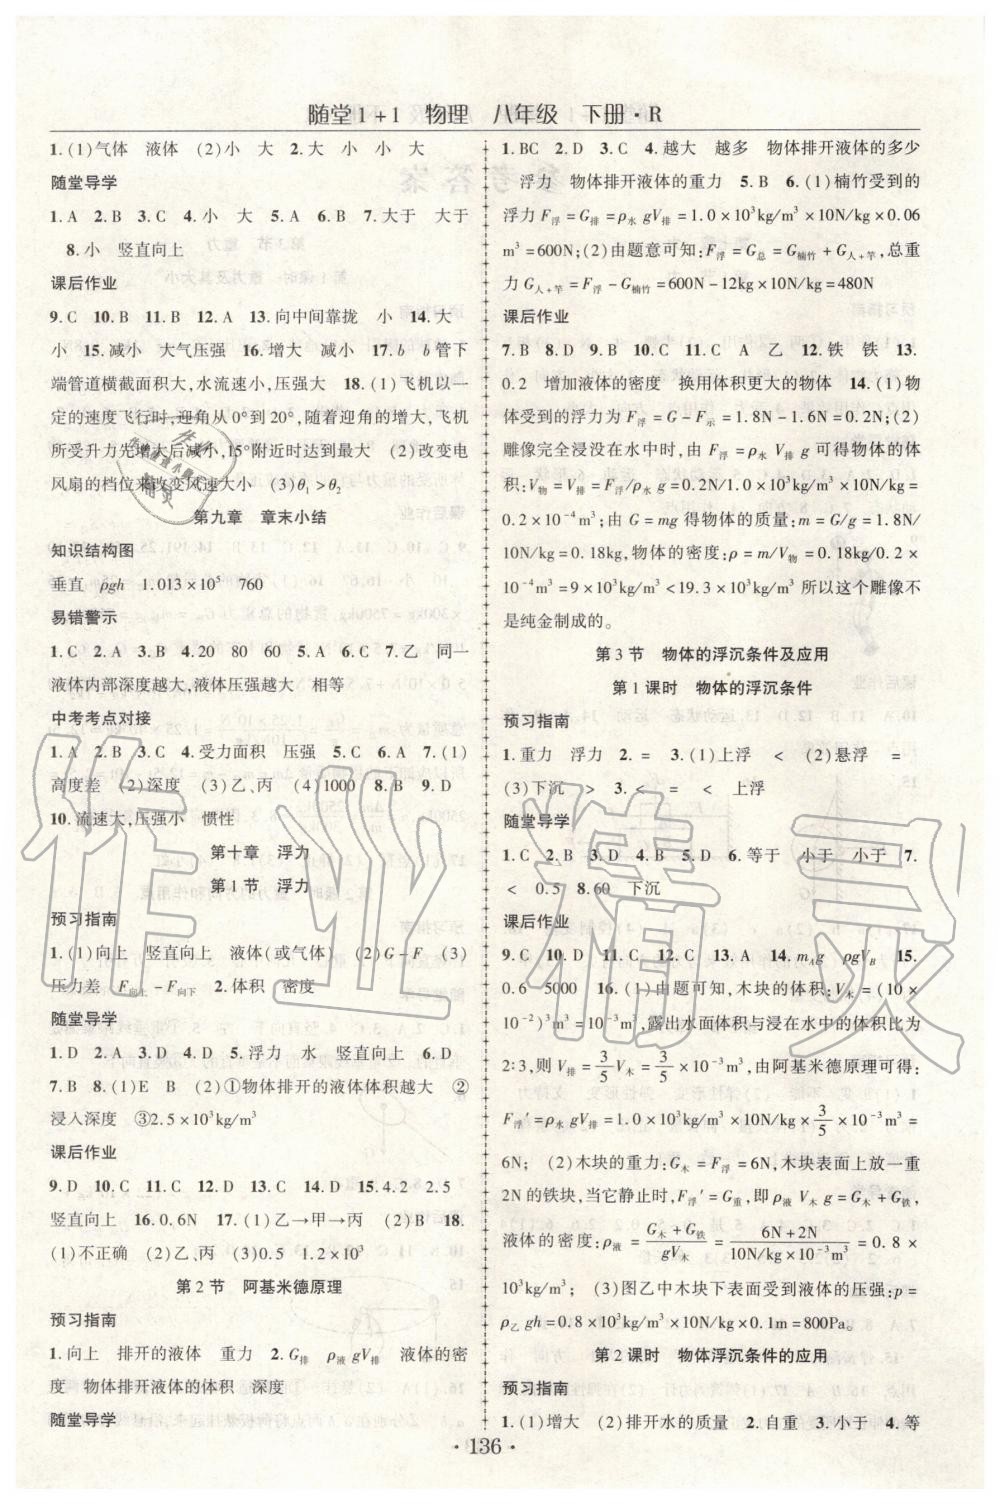 随堂1+1 物理 八年级 下册·R
1.(1)气体 液体 (2)小 大 2.大 小 小 大
随堂导学
1.A 2.B 3.C 4.小 大 5.A 6.B 7.大于 大于
8.小 竖直向上
课后作业
9.C 10.B 11.B 12.A 13.向中间靠拢 小 14.大
小 15.减小 大气压强 16.增大 减小 17.b b管下
端管道横截面积大,水流速小,压强大 18.(1)飞机以一
定的速度飞行时,迎角从0°到20°,随着迎角的增大,飞机
所受升力先增大后减小,15°附近时达到最大 (2)改变电
风扇的档位来改变风速大小 (3)θ₁>θ₂
第九章 章末小结
知识结构图
垂直 ρgh 1.013×10⁵ 760
易错警示
1.C 2.A 3.B 4.20 80 60 5.A 6.C 7.乙 同一
液体内部深度越大,液体压强越大 相等
中考考点对接
1.A 2.B 3.C 4.受力面积 压强 5.C 6.A 7.(1)
高度差 (2)深度 (3)乙、丙 (4)1000 8.B 9.D
10.流速大,压强小 惯性
第十章 浮力
第1节 浮力
预习指南
1.(1)向上 竖直向上 液体(或气体) (2)G-F (3)
压力差 F向上-F向下 2.体积 密度
随堂导学
1.D 2.A 3.D 4.D 5.浮力 水 竖直向上 6.D
7.B 8.(1)E B (2)①物体排开的液体体积越大 ②
浸入深度 ③2.5×10³kg/m³
课后作业
9.D 10.C 11.C 12.D 13.C 14.D 15.4.2 2.5
竖直向上 16.0.6N 17.(1)乙→甲→丙 (2)B 18.
(1)不正确 (2)乙、丙 (3)0.5 1.2×10³
第2节 阿基米德原理
预习指南
1.向上 排开的液体 重力 2.G排 ρ液 gV排 液体的密
度 物体排开液体的体积 深度
随堂导学
1.BC 2.D 3.C 4.越大 越多 物体排开液体的多少
浮力 物体排开液体的重力 5.B 6.(1)楠竹受到的
浮力F浮=G排=ρ水 gV排=1.0×10³kg/m³×10N/kg×0.06
m³=600N;(2)由题意可知:F浮=G总=G楠竹+G人+竿,总重
力G人+竿=F浮-G楠竹=600N-12kg×10N/kg=480N
课后作业
7.B 8.D 9.B 10.C 11.C A 乙 12.铁 铁 13.
0.2 增加液体的密度 换用体积更大的物体 14.(1)物
体受到的浮力为F浮=G-F示=1.8N-1.6N=0.2N;(2)
雕像完全浸没在水中时,由F浮=ρ水 V排 g可得物体的体
积:V物=V排=F浮/ρ水 g=0.2N/1.0×10³kg/m³×10N/kg=
0.2×10⁻⁴m³;由G=mg得物体的质量:m=G/g=1.8N/
10N/kg=0.18kg,物体的密度:ρ=m/V物=0.18kg/0.2×
10⁻⁴m³=9×10³kg/m³<19.3×10³kg/m³所以这个雕像不
是纯金制成的。
第3节 物体的浮沉条件及应用
第1课时 物体的浮沉条件
预习指南
1.重力 浮力 2.= 3.(1)上浮 < (2)悬浮 =
(3)下沉 > 3.< = < 上浮
随堂导学
1.C 2.B 3.D 4.B 5.D 6.等于 小于 小于 7.
< 0.5 8.60 下沉
课后作业
9.C 10.D 11.C 12.C 13.A 14.mAg ρgVB 15.
0.6 5000 16.(1)由题可知,木块的体积:V木=(10×
10⁻²)³m³=10⁻³m³,露出水面体积与浸在水中的体积比为
2:3,则V排=3/5V木=3/5×10⁻³m³,由阿基米德原理可得:
F浮′=ρ水 gV排=1.0×10³kg/m³×10N/kg×3/5×10⁻³m³=
6N; (2)木块的重力:G木=F浮=6N,木块表面上放一重
2N的铁块,当它静止时,F浮′=G重,即ρ液 V木 g=G木+G铁,
液体的密度:ρ液=(G木+G铁)/(gV木)=(6N+2N)/(10N/kg×10⁻³m³)=0.8×
10³kg/m³; (3)图乙中木块下表面受到液体的压强:p=
ρ乙 gh=0.8×10³kg/m³×10N/kg×0.1m=800Pa。
第2课时 物体浮沉条件的应用
预习指南
1.(1)增大 (2)排开水的质量 2.自重 3.小于 4.等
·136·
作业精灵